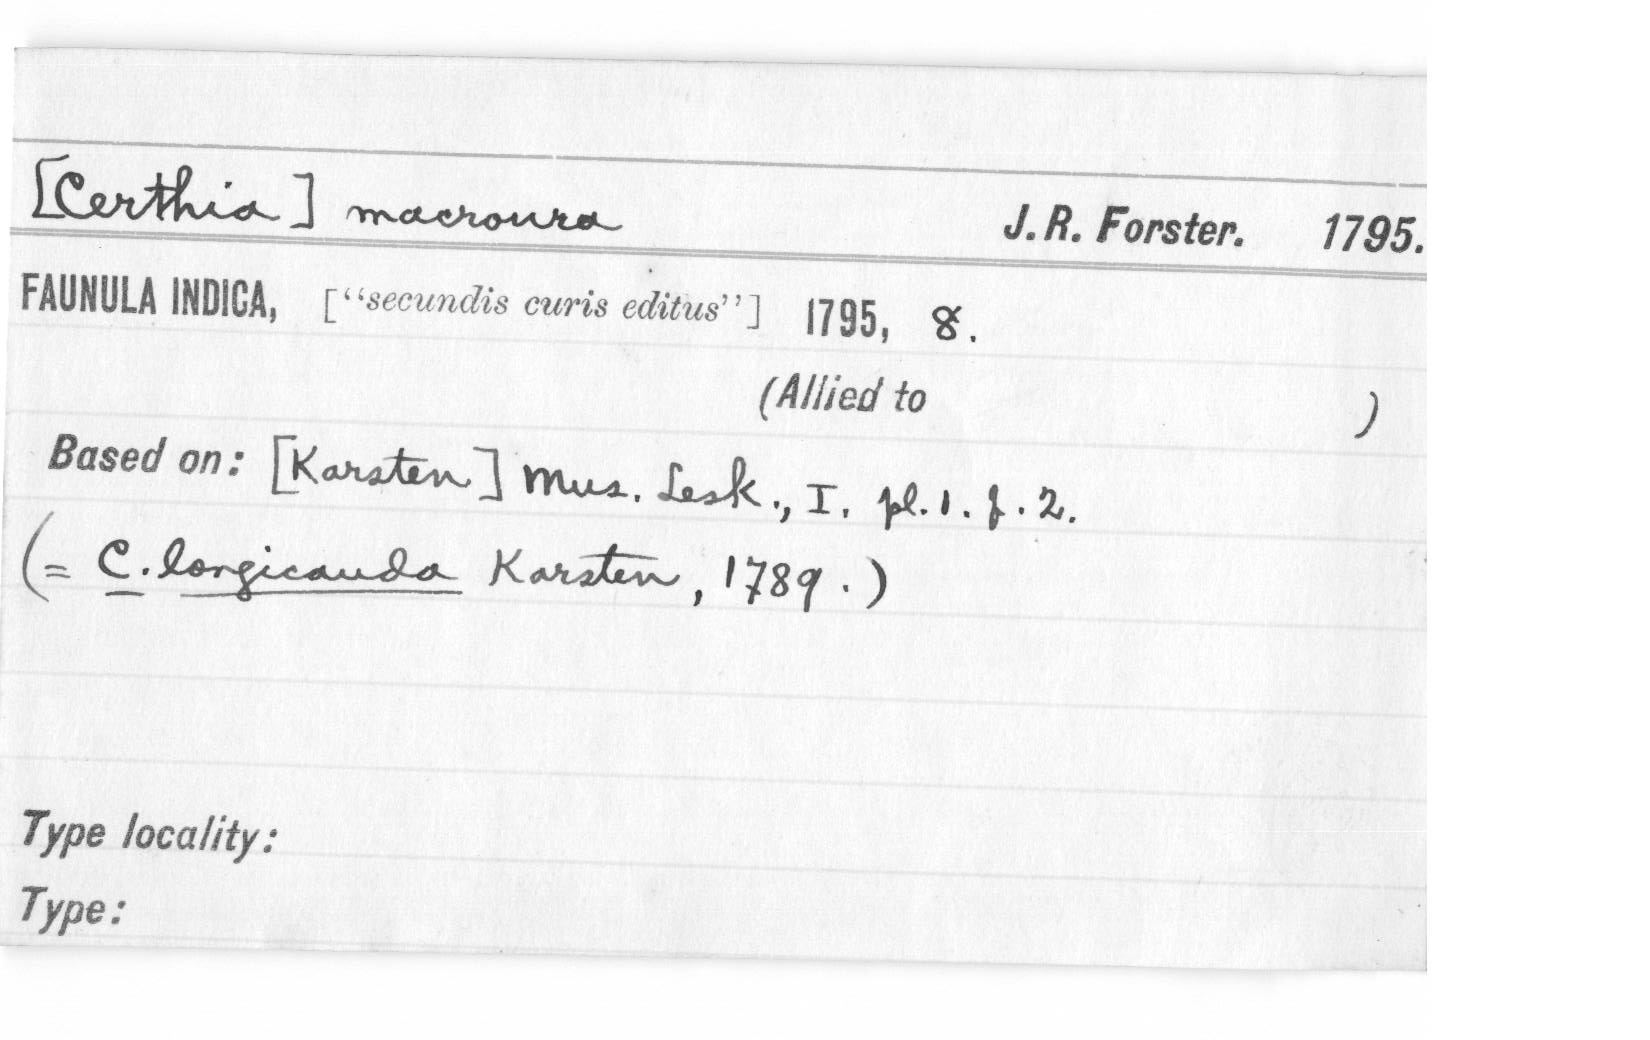 [Certhia] macroura J. R. Forster. 1795.
FAUNULA INDICA, [“secundis curis editus”] 1795, 8.
(Allied to )
Based on: [Karsten] Mus. Lesk., I. pl. 1. f. 2.
(= C. longicauda Karsten, 1789.)
Type locality:
Type: